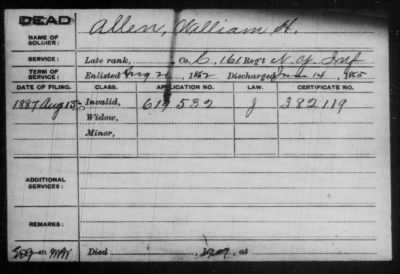 DEAD
NAME OF SOLDIER: Allen, William H.
SERVICE: Late rank, Co. C, 161 Reg't N.Y. Inf
TERM OF SERVICE: Enlisted Aug 1862 Discharged 14, 1865
DATE OF FILING. CLASS. APPLICATION NO. LAW. CERTIFICATE NO.
1887 Aug Invalid, 619532 J 382119
Widow,
Minor,
ADDITIONAL SERVICES:
REMARKS:
Died 190 , at